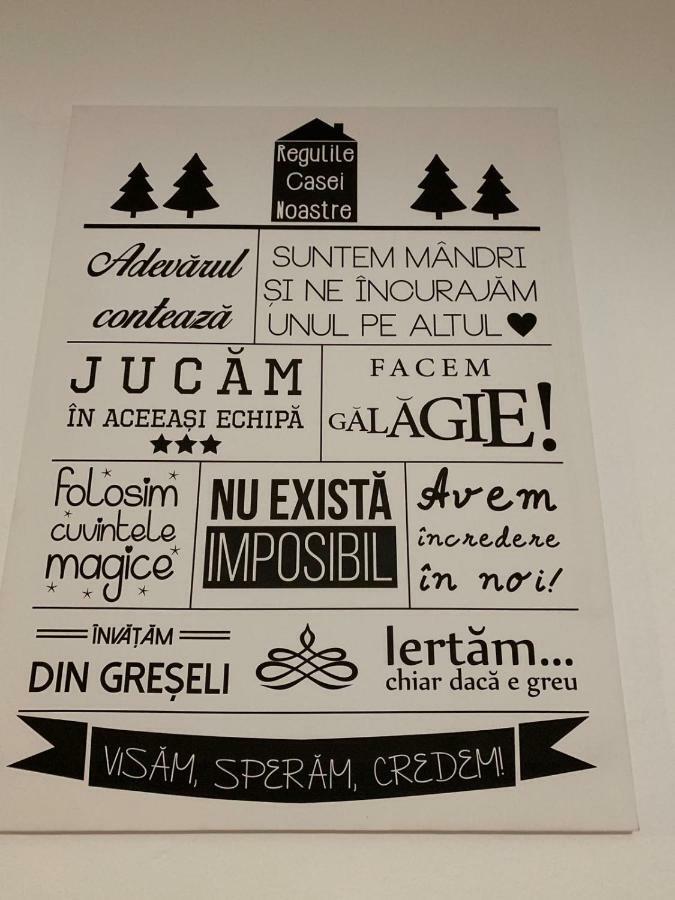 Regulile
Casei
Noastre
Adevărul
contează
SUNTEM MÂNDRI
ȘI NE ÎNCURAJĂM
UNUL PE ALTUL
JUCĂM
ÎN ACEEAȘI ECHIPĂ
FACEM
GĂLĂGIE!
folosim
cuvintele
magice
NU EXISTĂ
IMPOSIBIL
Avem
încredere
în noi!
ÎNVĂȚĂM
DIN GREȘELI
Iertăm...
chiar dacă e greu
VISĂM, SPERĂM, CREDEM!